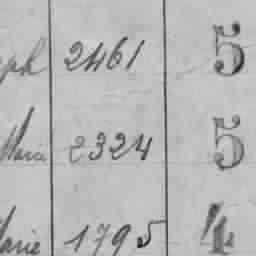 ph 2461 5
Marie 2324 5
Marie 1795 4